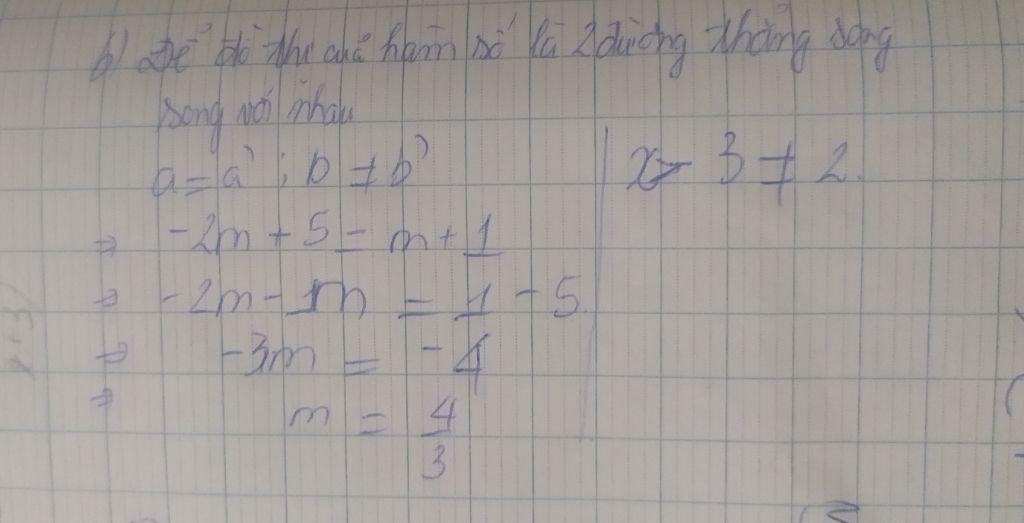 b) Để đồ thị của hàm số là 2 đường thẳng song
song với nhau
a = a' ; b ≠ b'
⇒ -2m + 5 = m + 1
⇒ -2m - 1m = 1 - 5
⇒ -3m = -4
⇒ m = 4/3
- 3 ≠ 2